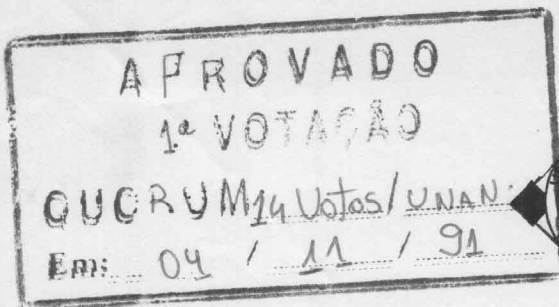 APROVADO
1ª VOTAÇÃO
QUORUM 14 Votos/UNAN.
Em: 04 / 11 / 91